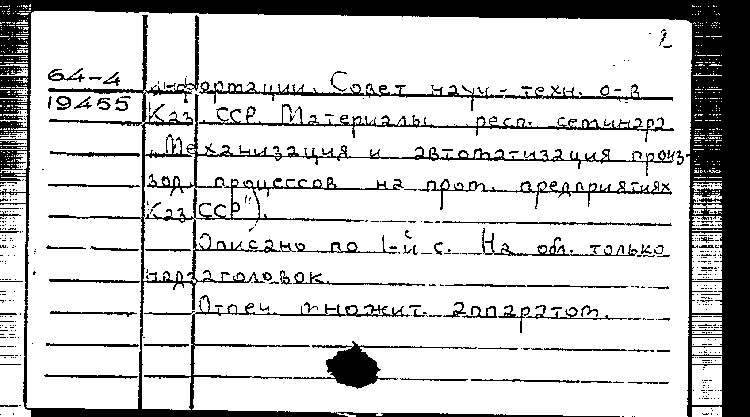 2
64-4
19455
информации. Совет науч.-техн. о-в
Каз. ССР. Материалы респ. семинара
"Механизация и автоматизация произ-
вод. процессов на пром. предприятиях
Каз. ССР").
Описано по 1-й с. На обл. только
надзаголовок.
Отпеч. множит. аппаратом.